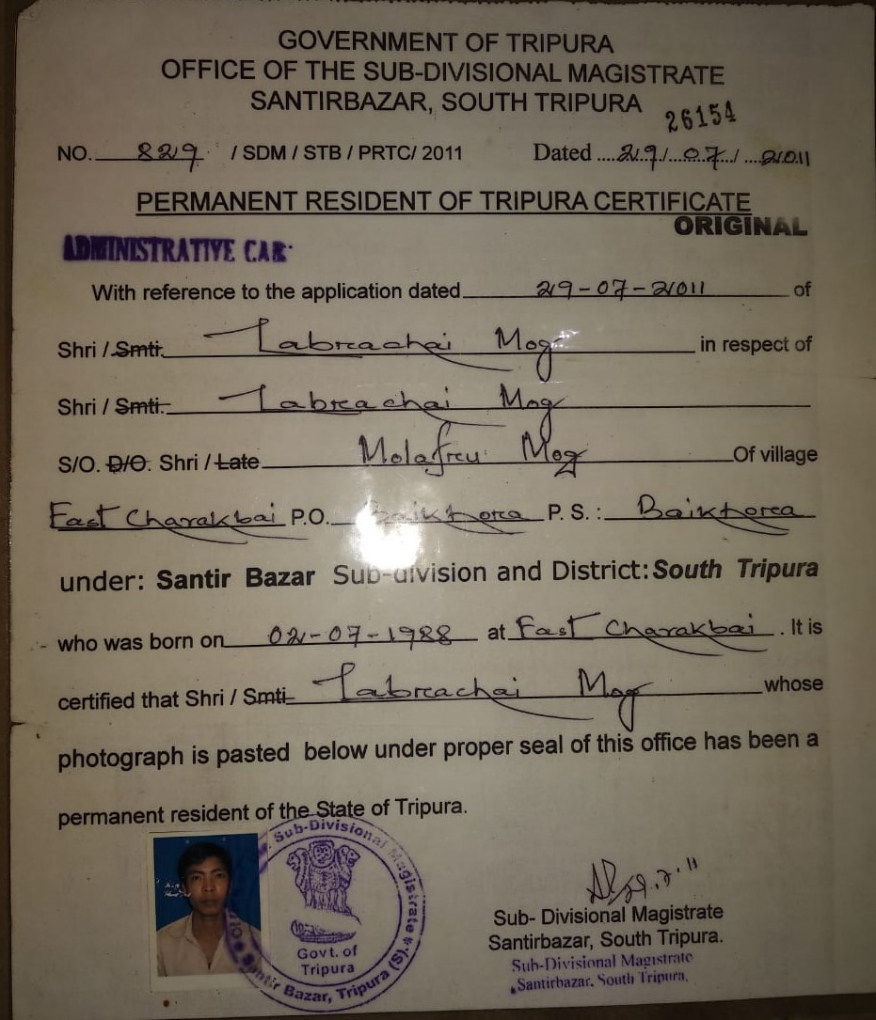 GOVERNMENT OF TRIPURA
OFFICE OF THE SUB-DIVISIONAL MAGISTRATE
SANTIRBAZAR, SOUTH TRIPURA
26154
NO. 829 / SDM / STB / PRTC/ 2011 Dated ....29../...07../....2011
PERMANENT RESIDENT OF TRIPURA CERTIFICATE
ORIGINAL
ADMINISTRATIVE CAR
With reference to the application dated 29-07-2011 of
Shri / Smti. Labreachai Mog in respect of
Shri / Smti. Labreachai Mog
S/O. D/O. Shri / Late Molafreu Mog Of village
East Charakbai P.O. Baikhorea P. S. : Baikhorea
under: Santir Bazar Sub-division and District: South Tripura
who was born on 02-07-1988 at East Charakbai . It is
certified that Shri / Smti Labreachai Mog whose
photograph is pasted below under proper seal of this office has been a
permanent resident of the State of Tripura.
Sub-Divisional Magistrate
Govt. of
Tripura
Santir Bazar, Tripura (S)
29.7.11
Sub- Divisional Magistrate
Santirbazar, South Tripura.
Sub-Divisional Magistrate
Santirbazar, South Tripura.